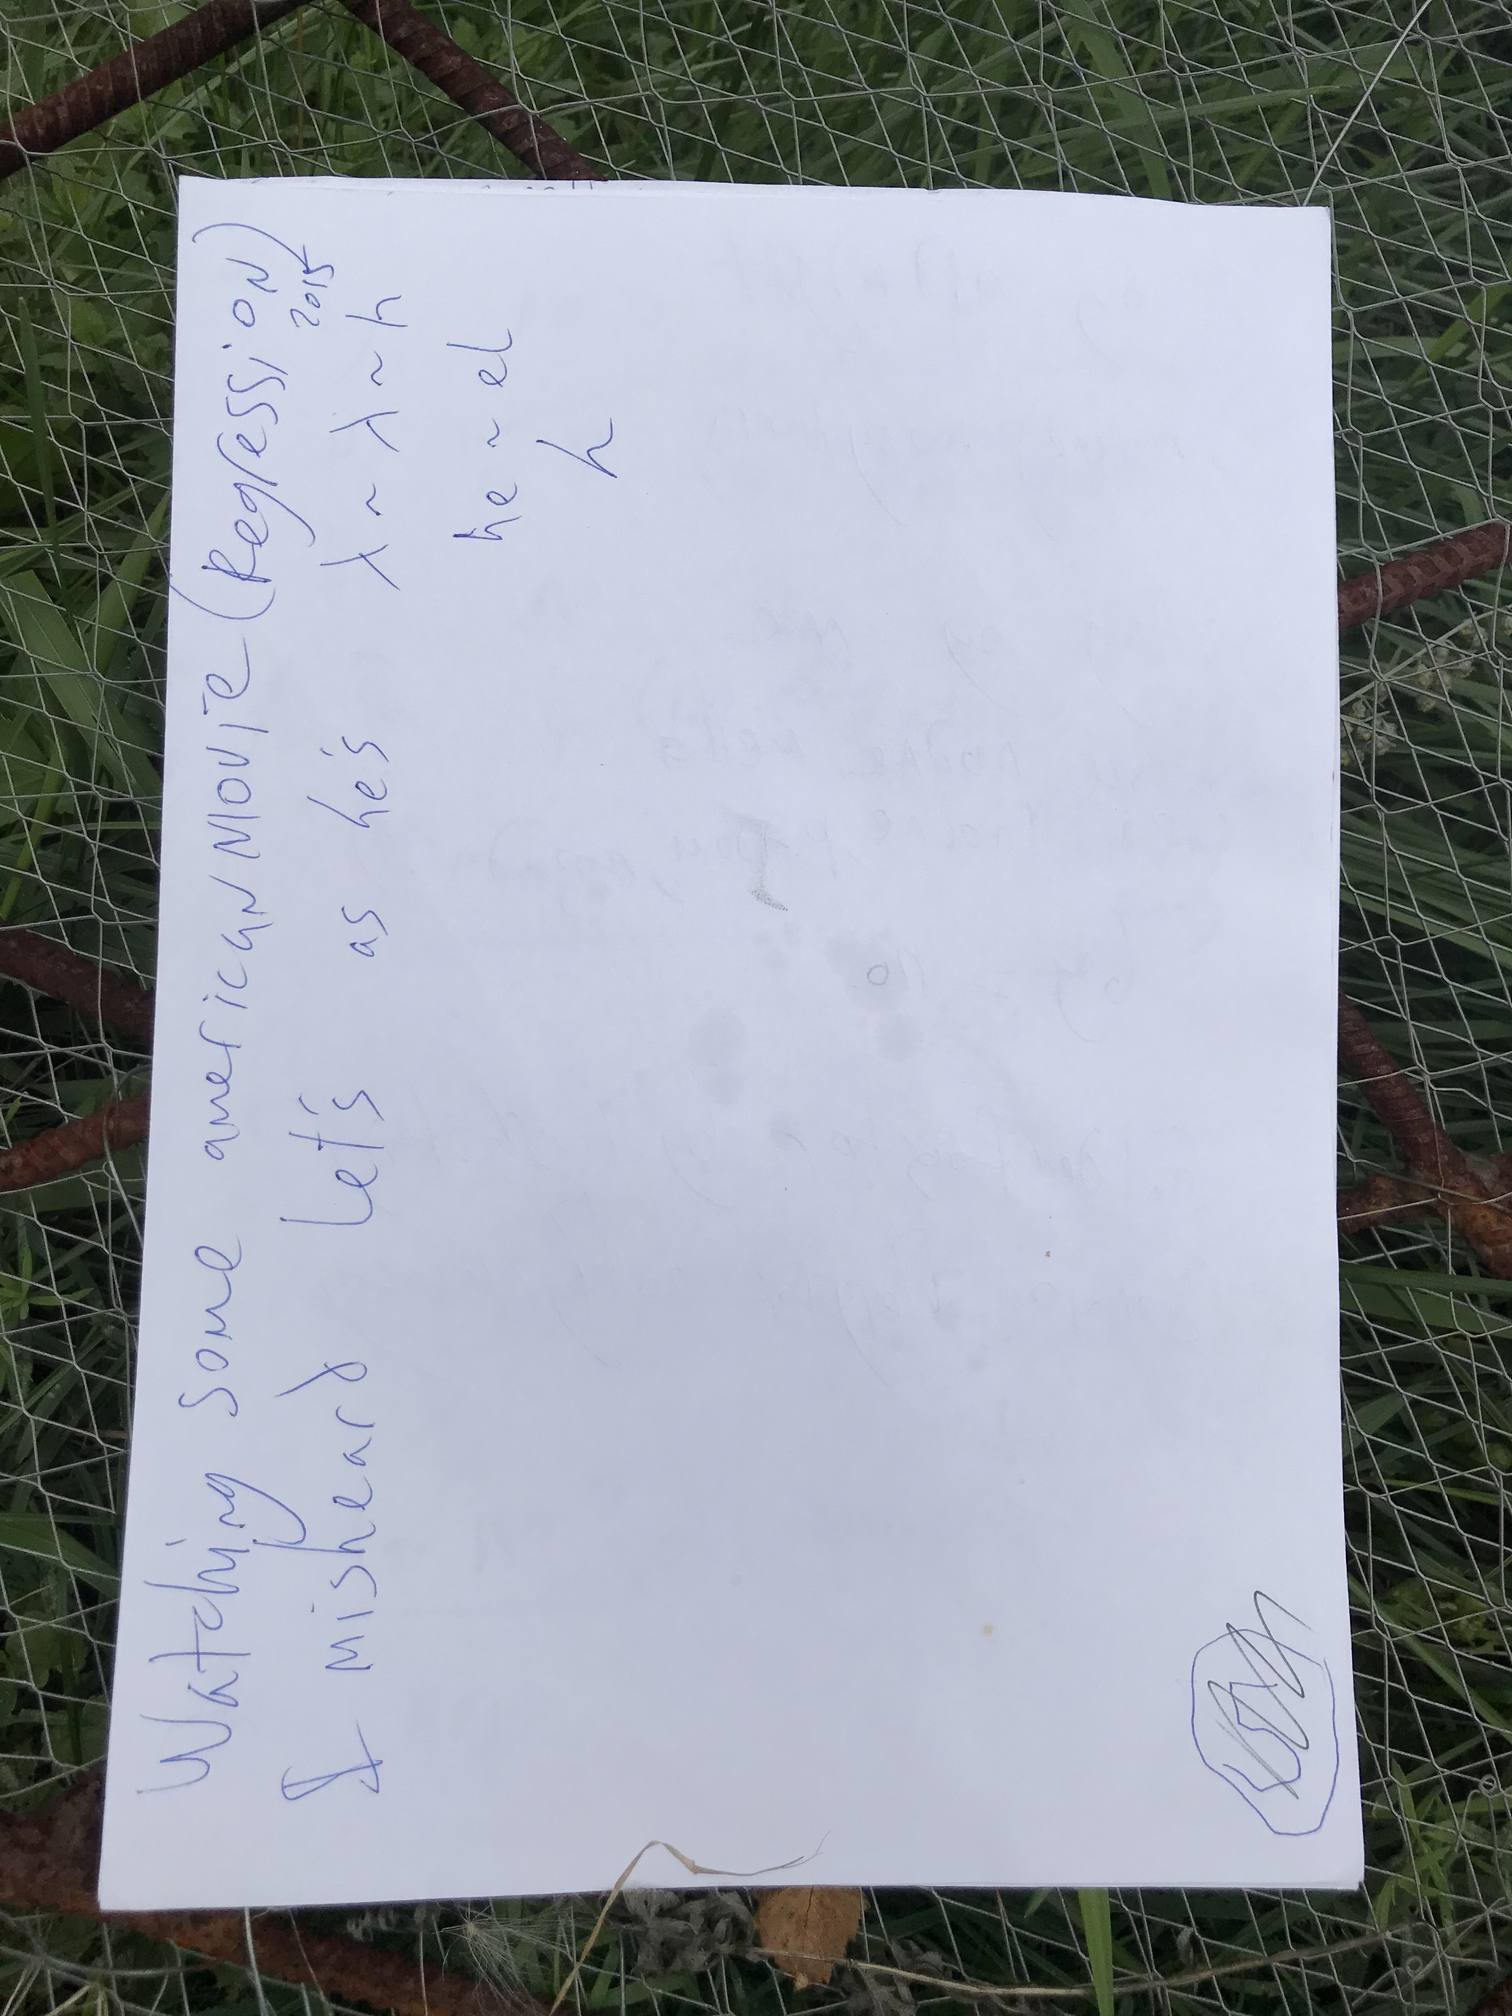 Watching some american movie (Regression)
2015
I misheard Let's as he's λ ~ λ ~ h
he ~ el
h